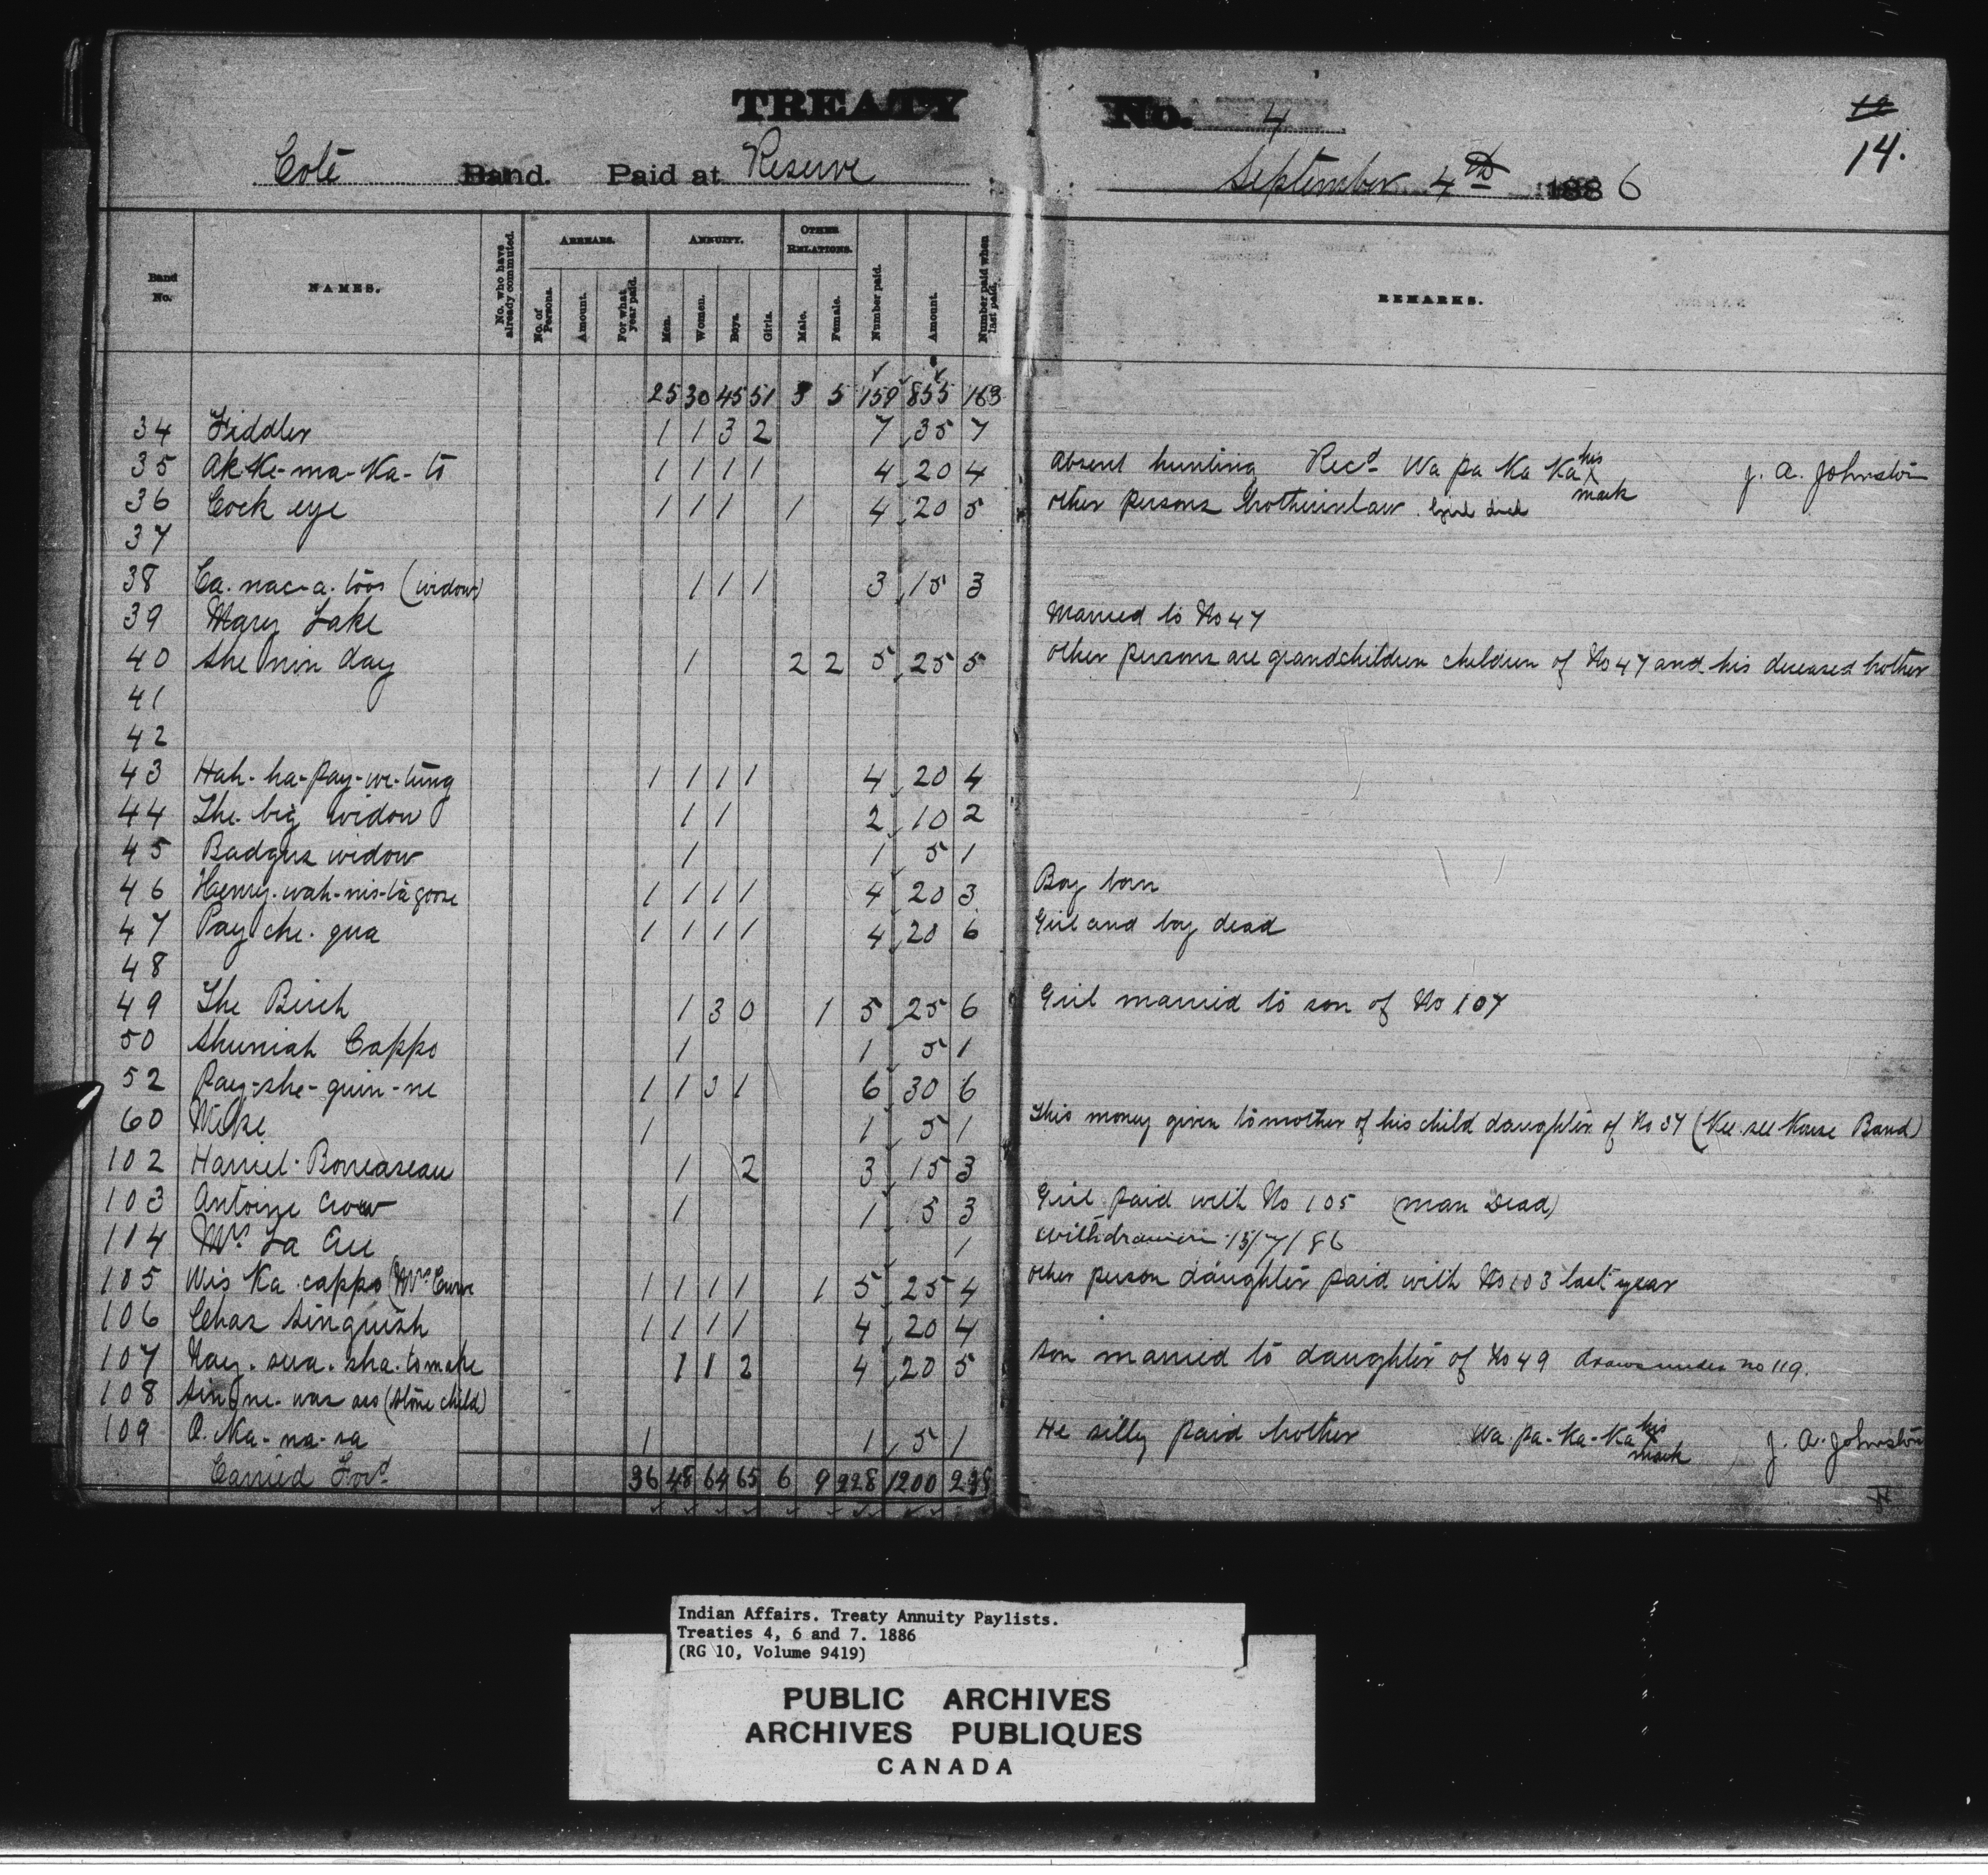 TREATY No. 4
12
14.
Coté Band. Paid at Reserve September 4th 1886
Band No. NAMES. No. who have already commuted. ARREARS. No. of Persons. Amount. For what year paid. ANNUITY. Men. Women. Boys. Girls. OTHER RELATIONS. Male. Female. Number paid. Amount. Number paid when last paid. REMARKS.
25 30 45 51 3 5 159 855 163
34 Fiddler 1 1 3 2 7 35 7
35 Ak-Ke-ma-Ka-to 1 1 1 1 4 20 4 Absent hunting Recd Wa pa Ka Ka his x mark J. A. Johnston
36 Cock eye 1 1 1 1 4 20 5 other persons brotherinlaw. Girl died
37
38 Ca-nac-a-toos (widow) 1 1 1 3 15 3
39 Mary Lake Married to No 47
40 She nin day 1 2 2 5 25 5 other persons are grandchildren children of No 47 and his deceased brother
41
42
43 Hah-ha-pay-we-tung 1 1 1 1 4 20 4
44 The big widow 1 1 2 10 2
45 Badgers widow 1 1 5 1
46 Henry-wah-nis-ta goose 1 1 1 1 4 20 3 Boy born
47 Pay che-qua 1 1 1 1 4 20 6 Girl and boy dead
48
49 The Birch 1 3 0 1 5 25 6 Girl married to son of No 107
50 Shuniah Cappo 1 1 5 1
52 Pay-she-quin-ne 1 1 3 1 6 30 6
60 Mike 1 1 5 1 This money given to mother of his child daughter of No 37 (Kee see Kouse Band)
102 Harriet 1 2 3 15 3
103 Antoine Crow 1 1 5 3 Girl paid with No 105 (man Dead)
104 Mrs La 1 Withdrawn 15/7/86
105 Wis Ka cappo (Mrs 1 1 1 1 1 5 25 4 other person daughter paid with No 103 last year
106 Chas Singuish 1 1 1 1 4 20 4
107 Nay-sua-sha-tomake 1 1 2 4 20 5 Son married to daughter of No 49 draws under no 119.
108 Sin ne-was sis (Stone child)
109 O-Ka-na-sa 1 1 5 1 He silly paid brother Wa-pa-Ka-Ka his x mark J. A. Johnston
Carried Ford 36 48 64 65 6 9 228 1200 238
Indian Affairs. Treaty Annuity Paylists.
Treaties 4, 6 and 7. 1886
(RG 10, Volume 9419)
PUBLIC ARCHIVES
ARCHIVES PUBLIQUES
CANADA